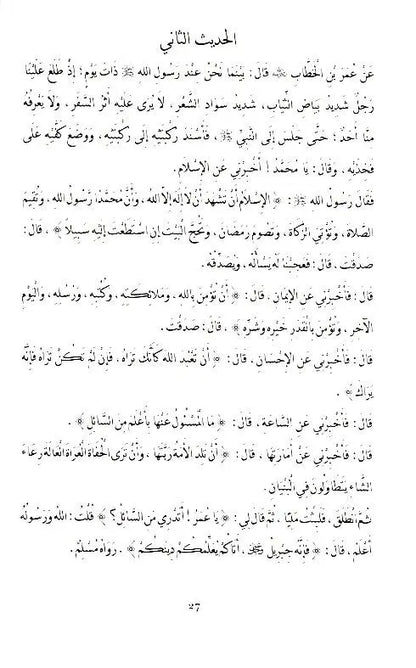 الحديث الثاني
عَنْ عُمَرَ بْنِ الْخَطَّابِ ﷺ قَالَ: بَيْنَمَا نَحْنُ عِنْدَ رَسُولِ اللهِ ﷺ ذَاتَ يَوْمٍ؛ إِذْ طَلَعَ عَلَيْنَا
رَجُلٌ شَدِيدُ بَيَاضِ الثِّيَابِ، شَدِيدُ سَوَادِ الشَّعْرِ، لَا يُرَى عَلَيْهِ أَثَرُ السَّفَرِ، وَلَا يَعْرِفُهُ
مِنَّا أَحَدٌ؛ حَتَّى جَلَسَ إِلَى النَّبِيِّ ﷺ، فَأَسْنَدَ رُكْبَتَيْهِ إِلَى رُكْبَتَيْهِ، وَوَضَعَ كَفَّيْهِ عَلَى
فَخِذَيْهِ، وَقَالَ: يَا مُحَمَّدُ! أَخْبِرْنِي عَنِ الْإِسْلَامِ.
فَقَالَ رَسُولُ اللهِ ﷺ: ﴿الْإِسْلَامُ أَنْ تَشْهَدَ أَنْ لَا إِلَهَ إِلَّا اللهُ، وَأَنَّ مُحَمَّدًا رَسُولُ اللهِ، وَتُقِيمَ
الصَّلَاةَ، وَتُؤْتِيَ الزَّكَاةَ، وَتَصُومَ رَمَضَانَ، وَتَحُجَّ الْبَيْتَ إِنِ اسْتَطَعْتَ إِلَيْهِ سَبِيلاً﴾، قَالَ:
صَدَقْتَ، قَالَ: فَعَجِبْنَا لَهُ يَسْأَلُهُ، وَيُصَدِّقُهُ.
قَالَ: فَأَخْبِرْنِي عَنِ الْإِيمَانِ، قَالَ: ﴿أَنْ تُؤْمِنَ بِاللهِ، وَمَلَائِكَتِهِ، وَكُتُبِهِ، وَرُسُلِهِ، وَالْيَوْمِ
الْآخِرِ، وَتُؤْمِنَ بِالْقَدَرِ خَيْرِهِ وَشَرِّهِ﴾، قَالَ: صَدَقْتَ.
قَالَ: فَأَخْبِرْنِي عَنِ الْإِحْسَانِ، قَالَ: ﴿أَنْ تَعْبُدَ اللهَ كَأَنَّكَ تَرَاهُ، فَإِنْ لَمْ تَكُنْ تَرَاهُ فَإِنَّهُ
يَرَاكَ﴾.
قَالَ: فَأَخْبِرْنِي عَنِ السَّاعَةِ، قَالَ: ﴿مَا الْمَسْئُولُ عَنْهَا بِأَعْلَمَ مِنَ السَّائِلِ﴾.
قَالَ: فَأَخْبِرْنِي عَنْ أَمَارَتِهَا، قَالَ: ﴿أَنْ تَلِدَ الْأَمَةُ رَبَّتَهَا، وَأَنْ تَرَى الْحُفَاةَ الْعُرَاةَ الْعَالَةَ رِعَاءَ
الشَّاءِ يَتَطَاوَلُونَ فِي الْبُنْيَانِ.
ثُمَّ انْطَلَقَ، فَلَبِثْتُ مَلِيًّا، ثُمَّ قَالَ لِي: ﴿يَا عُمَرُ! أَتَدْرِي مَنِ السَّائِلُ؟﴾ قُلْتُ: اللهُ وَرَسُولُهُ
أَعْلَمُ، قَالَ: ﴿فَإِنَّهُ جِبْرِيلُ ﷺ، أَتَاكُمْ يُعَلِّمُكُمْ دِينَكُمْ﴾. رَوَاهُ مُسْلِمٌ.
27